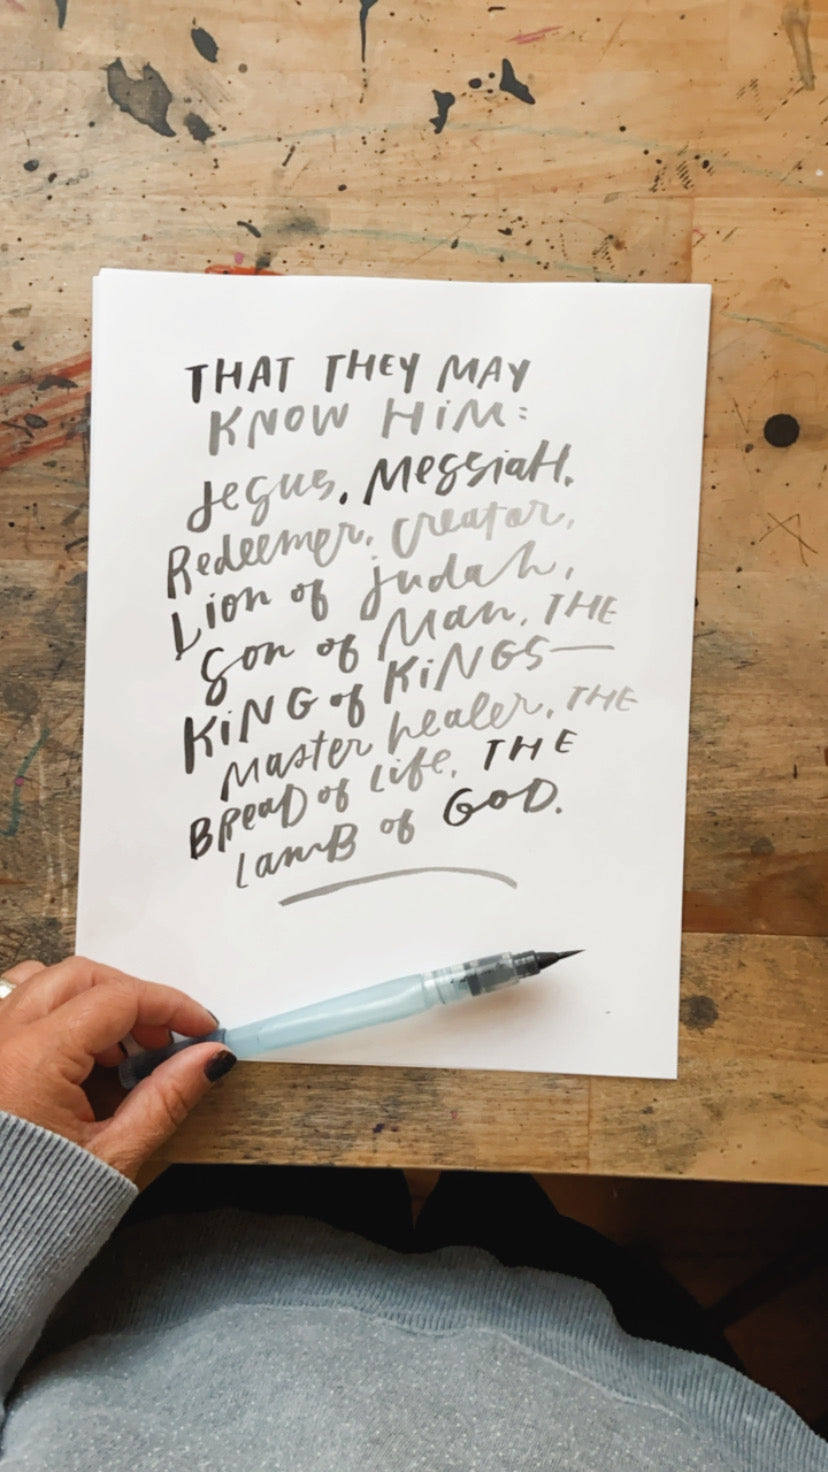 THAT THEY MAY
KNOW HiM:
Jesus, MessiaH,
Redeemer, Creator,
Lion of Judah,
Son of Man, THE
KiNG of KiNGS—
Master healer, THE
BReaD of Life, THE
LamB of GoD.